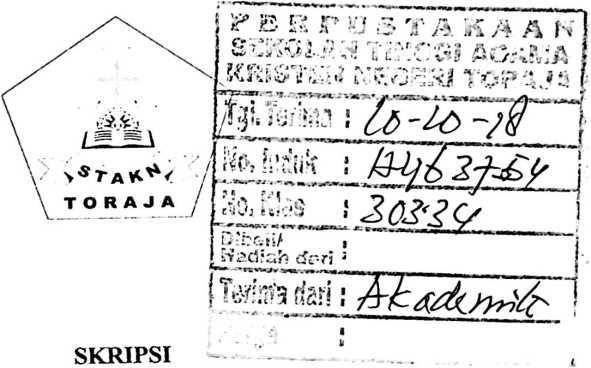 STAKN
TORAJA
PERPUSTAKAAN
SEKOLAH TINGGI AGAMA
KRISTEN NEGERI TORAJA
Tgl. Terima : 10-10-18
No. Induk :
No. Klas : 303.34
Dibeli/
Hadiah dari :
Terima dari : Akademik
:
SKRIPSI